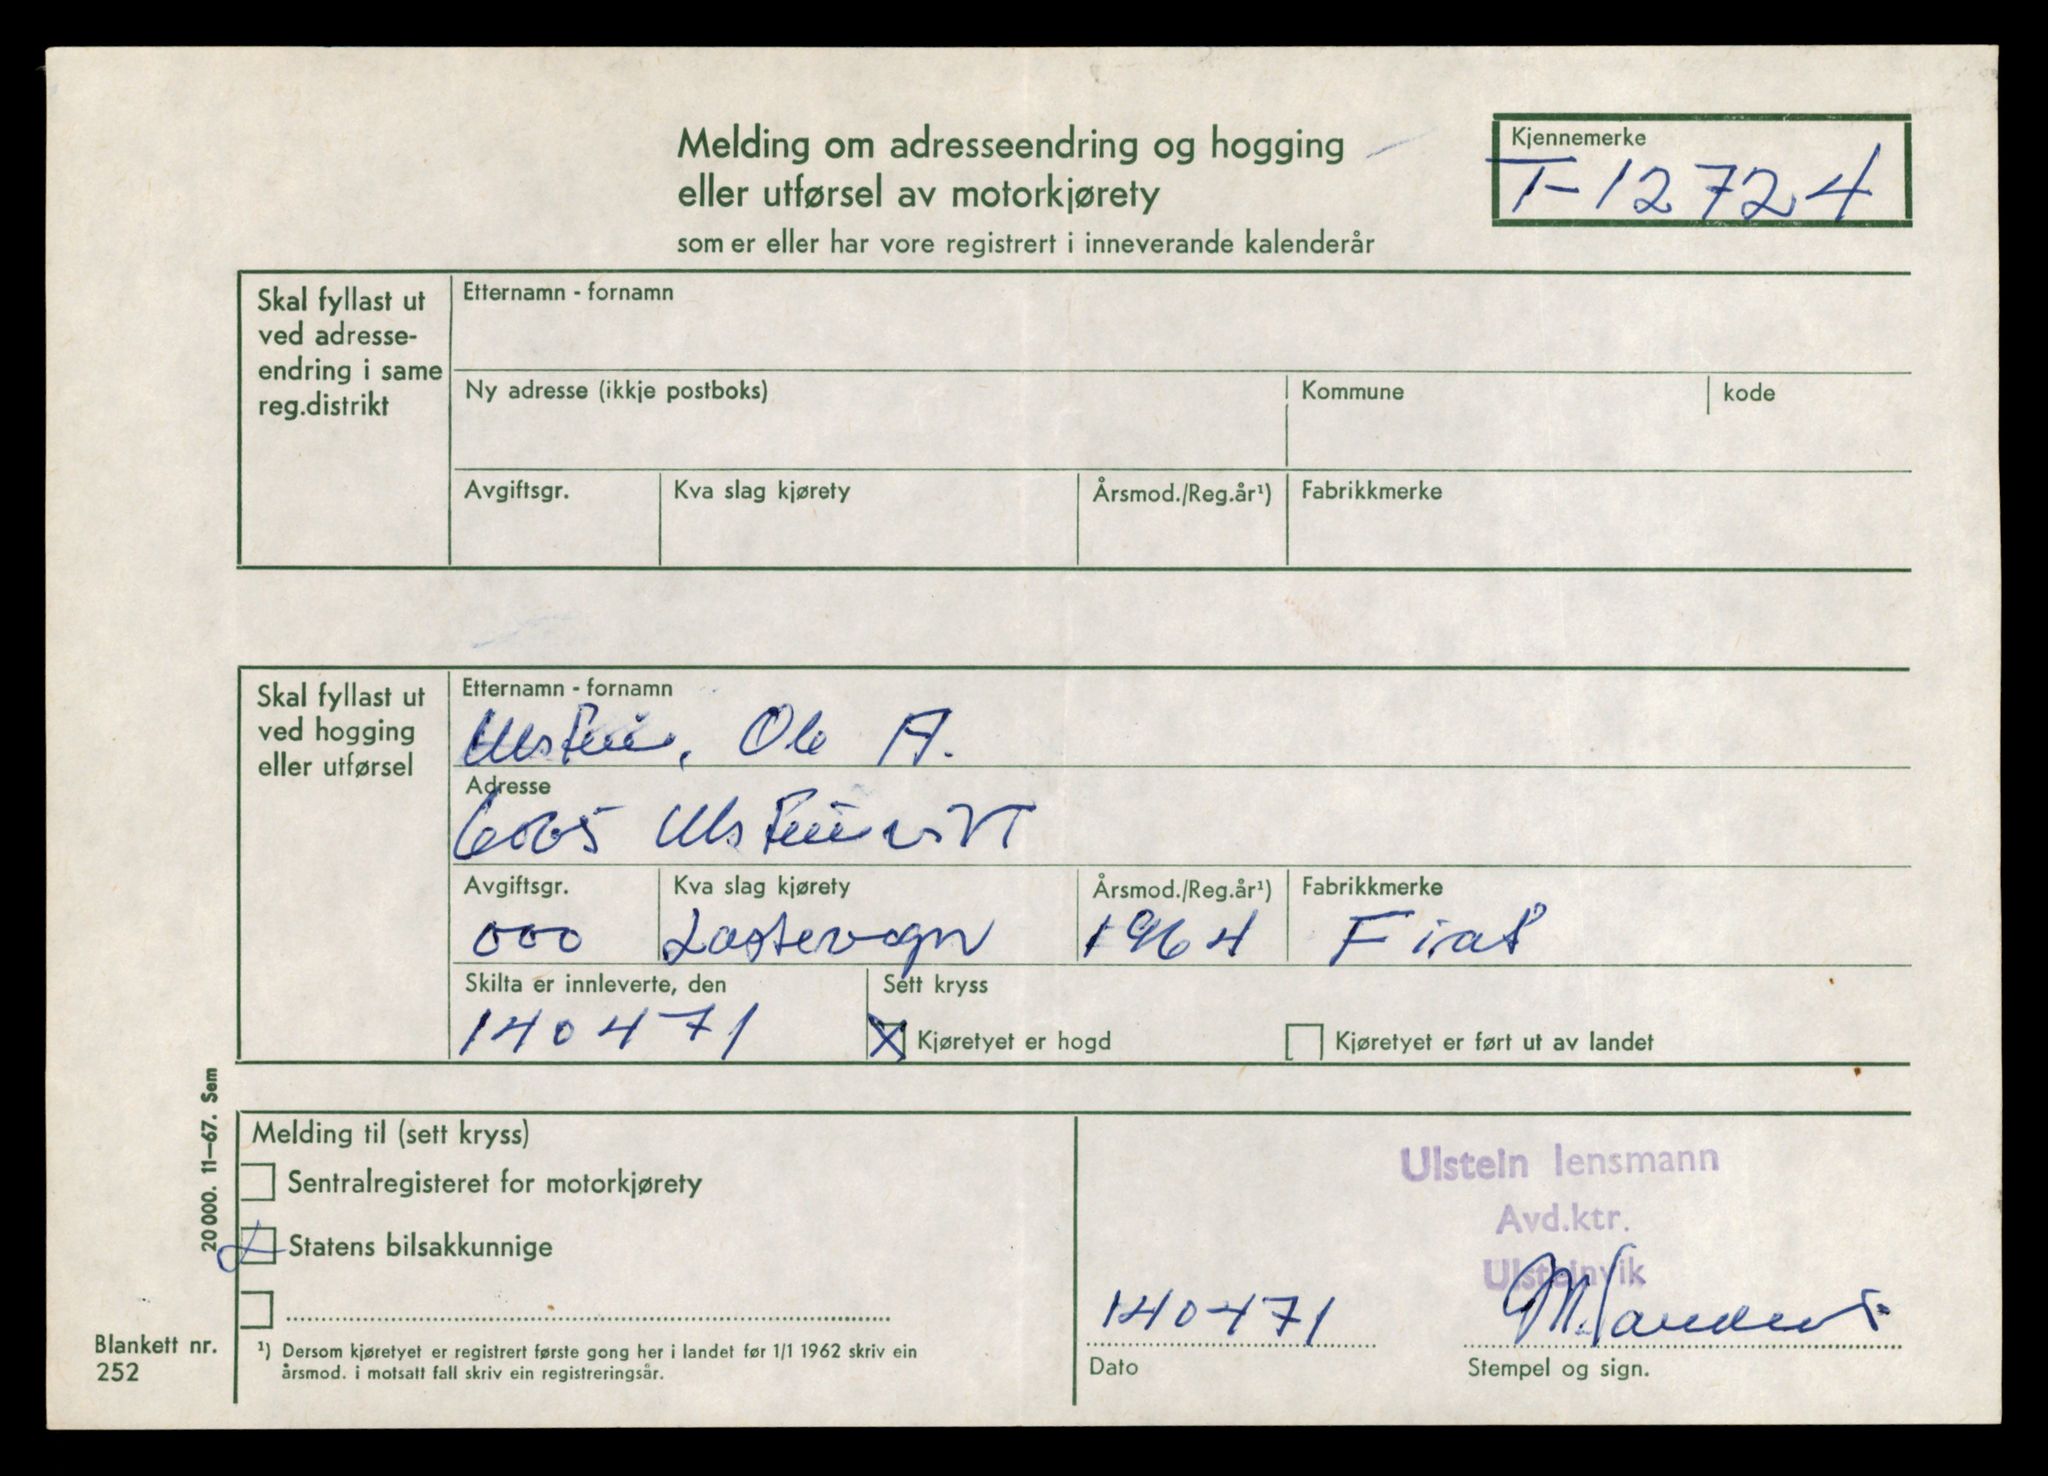 Melding om adresseendring og hogging
eller utførsel av motorkjørety
som er eller har vore registrert i inneverande kalenderår
Kjennemerke
T-12724
Skal fyllast ut
ved adresse-
endring i same
reg.distrikt
Etternamn - fornamn
Ny adresse (ikkje postboks)
Kommune
kode
Avgiftsgr.
Kva slag kjørety
Årsmod./Reg.år¹)
Fabrikkmerke
Skal fyllast ut
ved hogging
eller utførsel
Etternamn - fornamn
Ulstein, Ole A.
Adresse
6065 Ulsteinvik
Avgiftsgr.
000
Kva slag kjørety
Lastevogn
Årsmod./Reg.år¹)
1964
Fabrikkmerke
Fiat
Skilta er innleverte, den
140471
Sett kryss
Kjøretyet er hogd
Kjøretyet er ført ut av landet
20 000. 11–67. Sem
Melding til (sett kryss)
Sentralregisteret for motorkjørety
Statens bilsakkunnige
¹) Dersom kjøretyet er registrert første gong her i landet før 1/1 1962 skriv ein
årsmod. i motsatt fall skriv ein registreringsår.
Blankett nr.
252
Ulstein lensmann
Avd.ktr.
Ulsteinvik
140471
Dato
Stempel og sign.